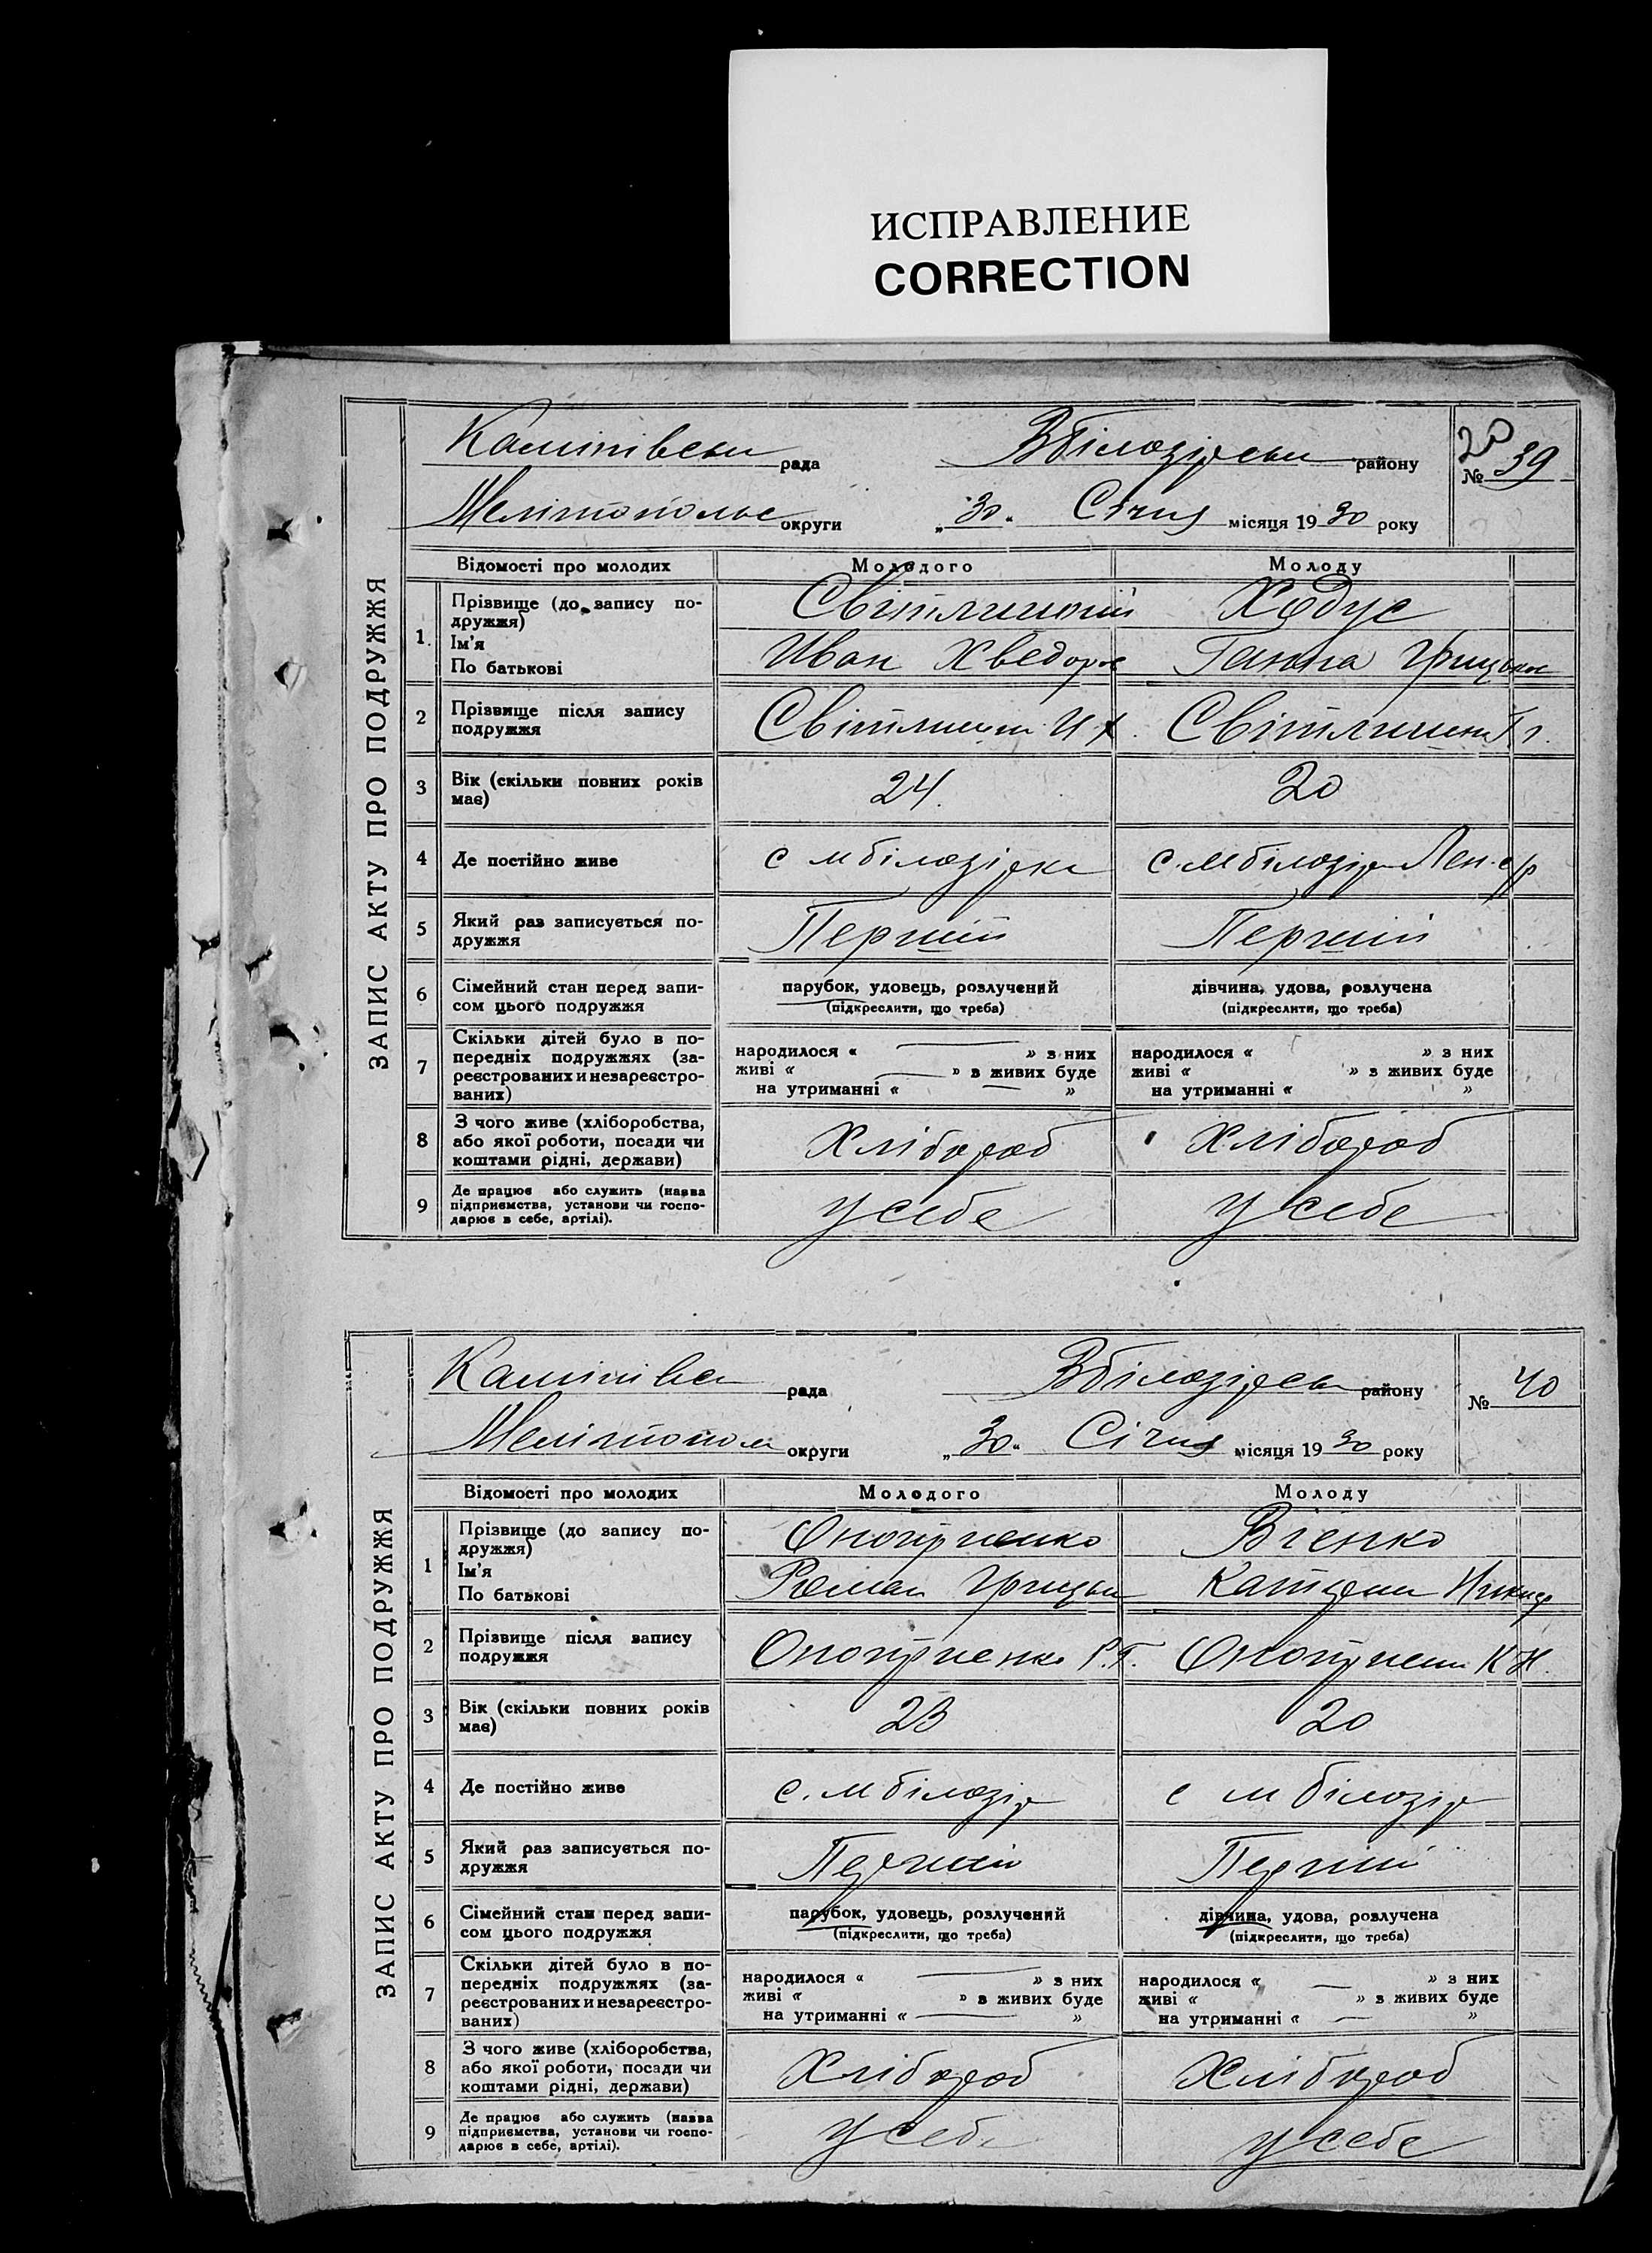 ИСПРАВЛЕНИЕ
CORRECTION
ЗАПИС АКТУ ПРО ПОДРУЖЖЯ
рада району № 39
20
округи „30“ Січня місяця 1930 року
Відомості про молодих Молодого Молоду
1 Прізвище (до запису по-
дружжя) Ходус
Ім'я
По батькові Иван Хведоров Ганна
2 Прізвище після запису
подружжя
3 Вік (скільки повних років
має) 24. 20
4 Де постійно живе с м білозірка с. м білозір Лен. с/р
5 Який раз записується по-
дружжя Перший Перший
6 Сімейний стан перед запи-
сом цього подружжя
парубок, удовець, розлучений
(підкреслити, що треба)
дівчина, удова, розлучена
(підкреслити, що треба)
7 Скільки дітей було в по-
передніх подружжях (за-
реєстрованих и незареєстро-
ваних)
народилося « » з них
живі « » в живих буде
на утриманні « »
народилося « » з них
живі « » з живих буде
на утриманні « »
8 З чого живе (хліборобства,
або якої роботи, посади чи
коштами рідні, держави) Хлібороб Хлібороб
9 Де працює або служить (назва
підприємства, установи чи госпо-
дарює в себе, артілі). у себе у себе
ЗАПИС АКТУ ПРО ПОДРУЖЖЯ
рада району № 40
округи „30“ Січня місяця 1930 року
Відомості про молодих Молодого Молоду
1 Прізвище (до запису по-
дружжя)
Ім'я
По батькові Роман
2 Прізвище після запису
подружжя Оноприенко Р. Г. К Н.
3 Вік (скільки повних років
має) 23 20
4 Де постійно живе с. м білозір с м білозір
5 Який раз записується по-
дружжя Перший Перший
6 Сімейний стан перед запи-
сом цього подружжя
парубок, удовець, розлучений
(підкреслити, що треба)
дівчина, удова, розлучена
(підкреслити, що треба)
7 Скільки дітей було в по-
передніх подружжях (за-
реєстрованих и незареєстро-
ваних)
народилося « » з них
живі « » в живих буде
на утриманні « »
народилося « » з них
живі « » з живих буде
на утриманні « »
8 З чого живе (хліборобства,
або якої роботи, посади чи
коштами рідні, держави) Хлібороб Хлібороб
9 Де працює або служить (назва
підприємства, установи чи госпо-
дарює в себе, артілі). у себе у себе